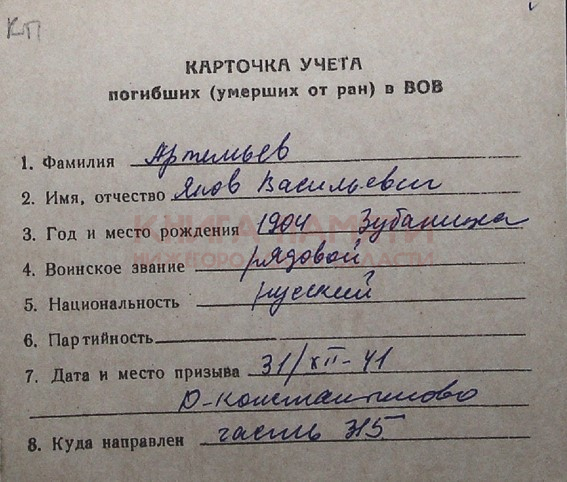 КП
КАРТОЧКА УЧЕТА
погибших (умерших от ран) в ВОВ
1. Фамилия Артемьев
2. Имя, отчество Яков Васильевич
КНИГА ПАМЯТИ
3. Год и место рождения 1904 Зубаниха
НИЖЕГОРОДСКОЙ ОБЛАСТИ
4. Воинское звание рядовой
5. Национальность русский
6. Партийность
7. Дата и место призыва 31/XII-41
Д-Константиново
8. Куда направлен часть 315